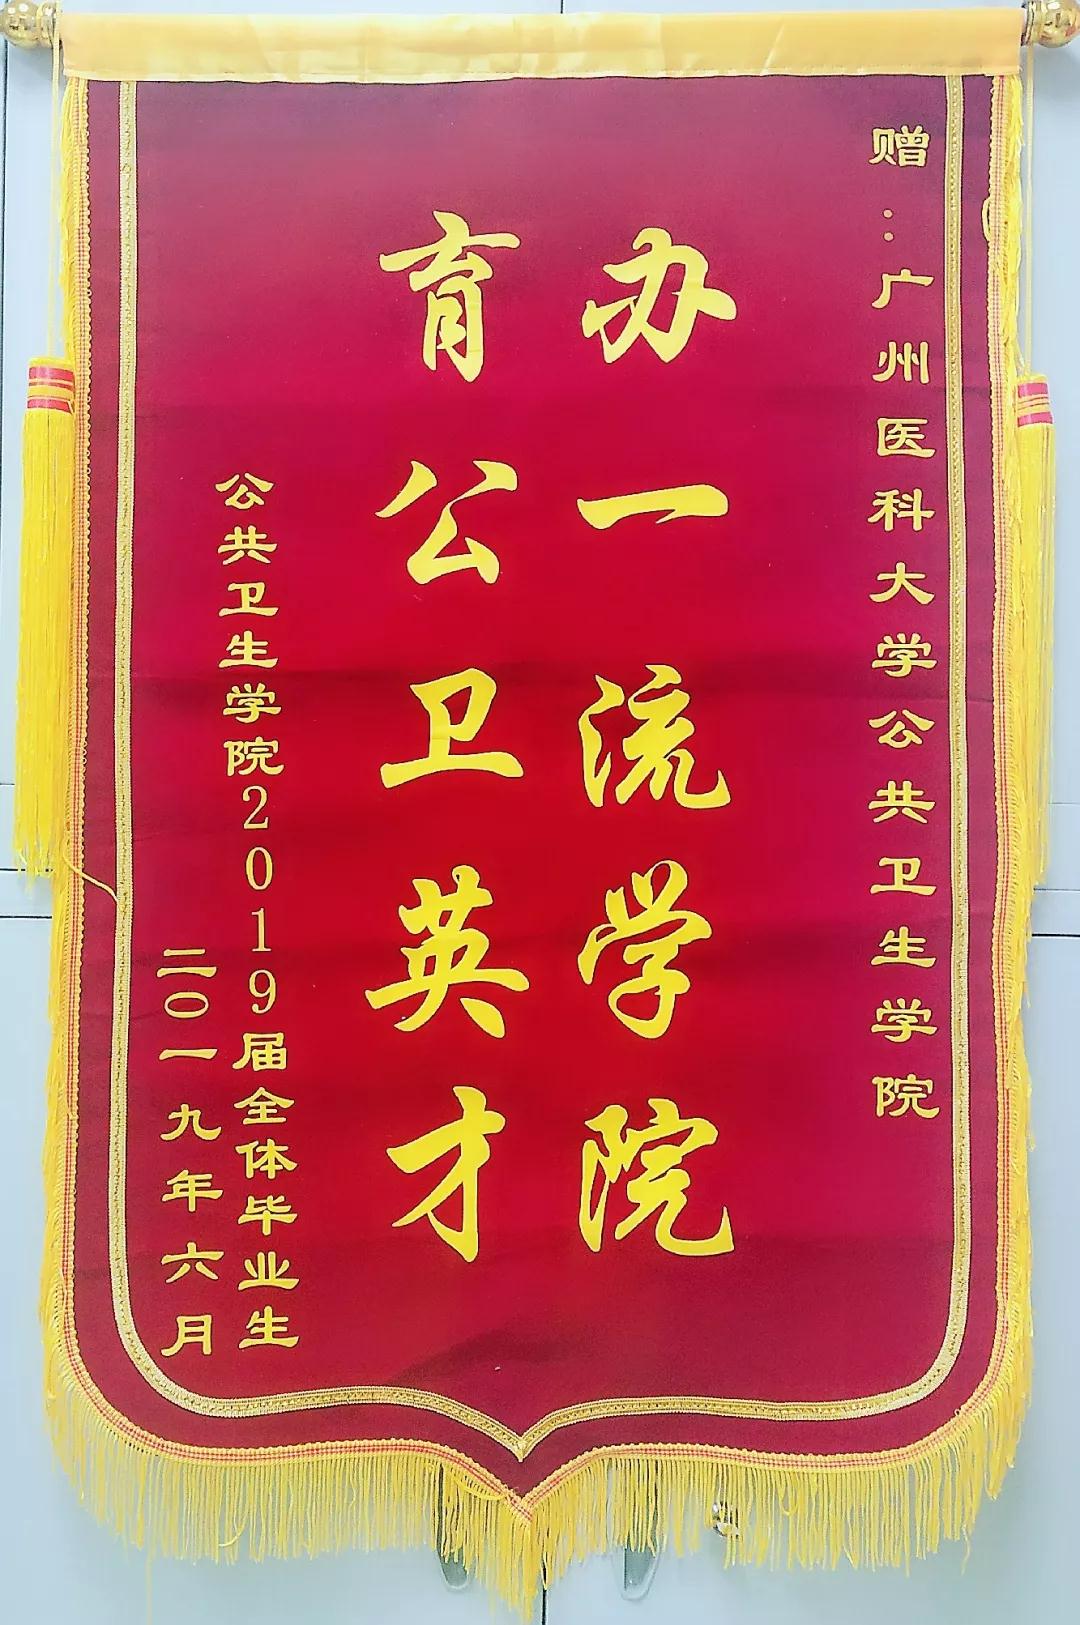 赠：广州医科大学公共卫生学院
办一流学院
育公卫英才
公共卫生学院2019届全体毕业生
二〇一九年六月